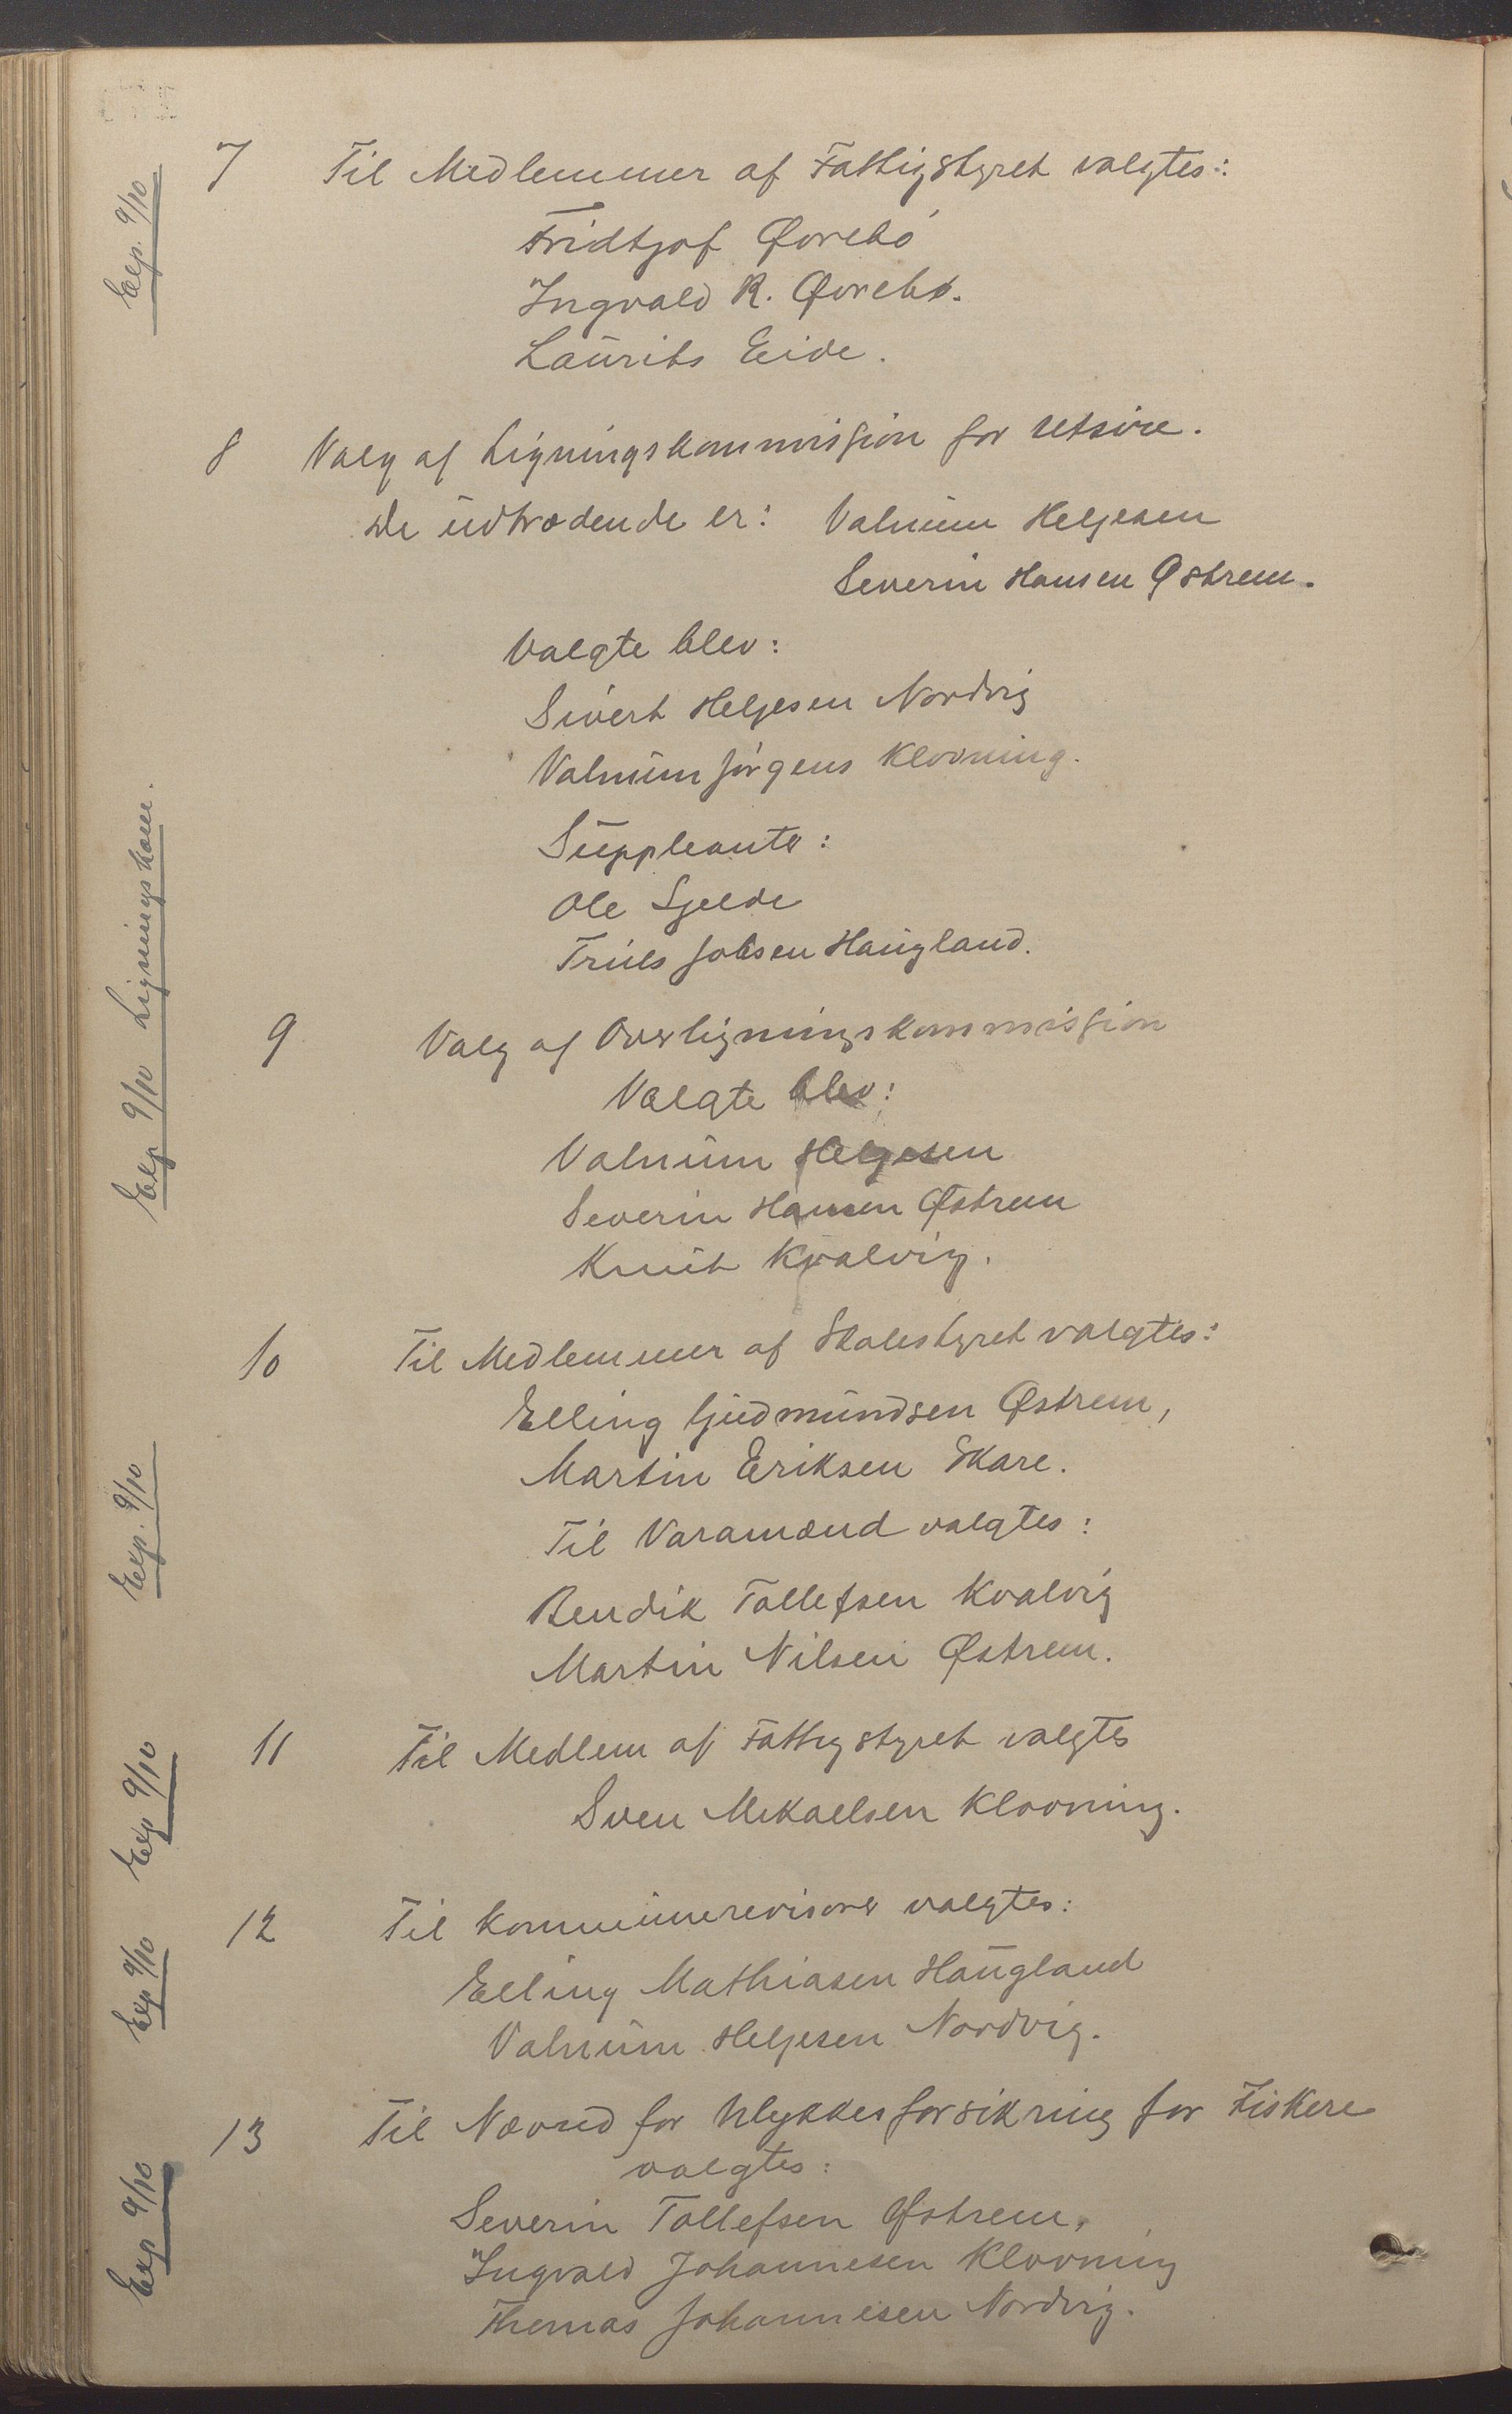 7 Til Medlemmer af Fattigstyret valgtes:
Exp. 9/10
Fridtjof Øvrebö
Ingvald R. Øvrebø.
Laurits Eide.
8 Valg af Ligningskommission for Utsire.
De udtrædende er: Valnum Helgesen
Severin Hansen Østrem.
Valgte blev:
Sivert Helgesen Nordvig
Valnum Jørgens Klovning.
Suppleanter:
Ole Sjelde
Truls Jobsen Haugland.
Exp 9/10 Ligningskom.
9 Valg af Overligningskommission
Valgte blev:
Valnum Helgesen
Severin Hansen Østrem
Knut Kvalvig.
10 Til Medlemmer af Skolestyret valgtes:
Elling Gudmundsen Østrem,
Martin Eriksen Skare.
Exp. 9/10
Til Varamænd valgtes:
Bendik Tollefsen Kvalvig
Martin Nilsen Østrem.
11 Til Medlem af Fattigstyret valgtes
Exp 9/10
Sven Mikaelsen Klovning.
12 Til Kommunerevisorer valgtes:
Exp 9/10
Elling Mathiasen Haugland
Valnum Helgesen Nordvig.
13 Til Nævnd for Ulykkesforsikring for Fiskere
valgtes:
Exp 9/10
Severin Tollefsen Østrem,
Ingvald Johannesen Klovning
Thomas Johannesen Nordvig.